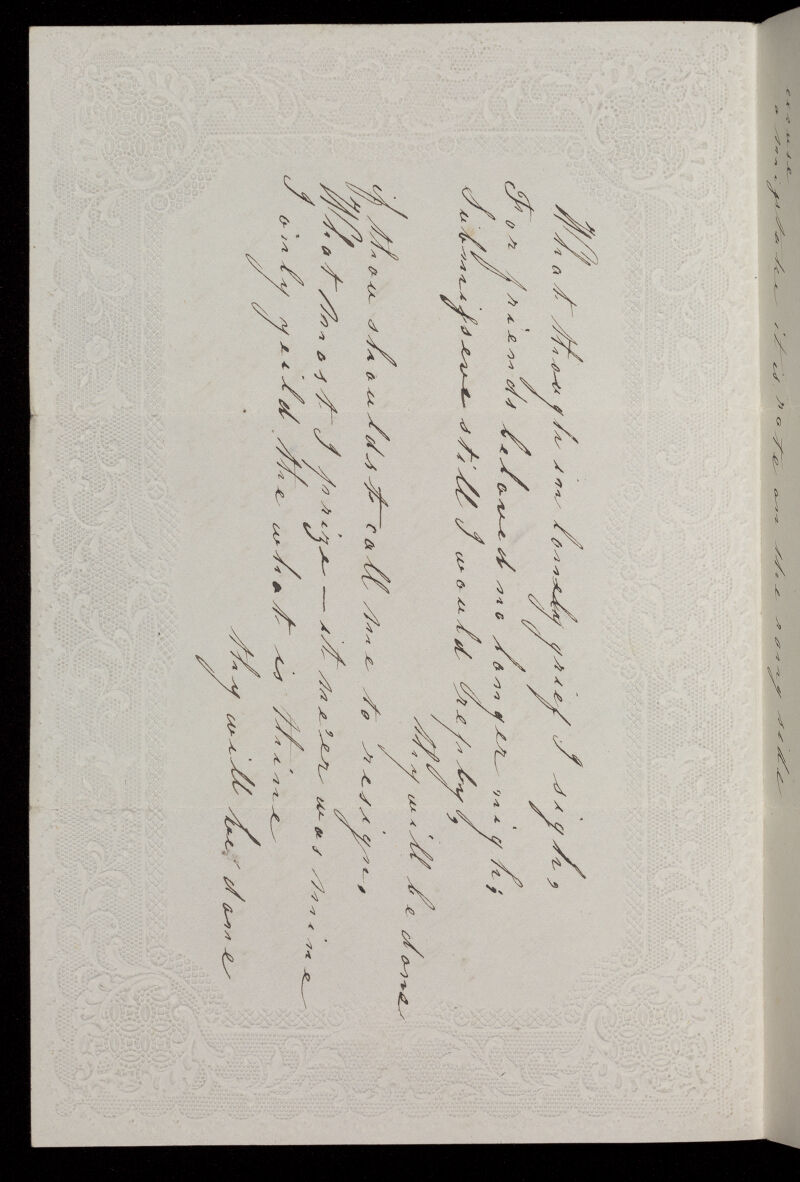 excuse
a mistake it is rote on the rong side
What though in lonely grief I sigh,
For friends beloved no longer nigh;
Submisseve still I would reply,
thy will be done
if thou shouldst call me to resign,
What most I prize — it ne'er was mine
I only yeild the what is thine
thy will be done